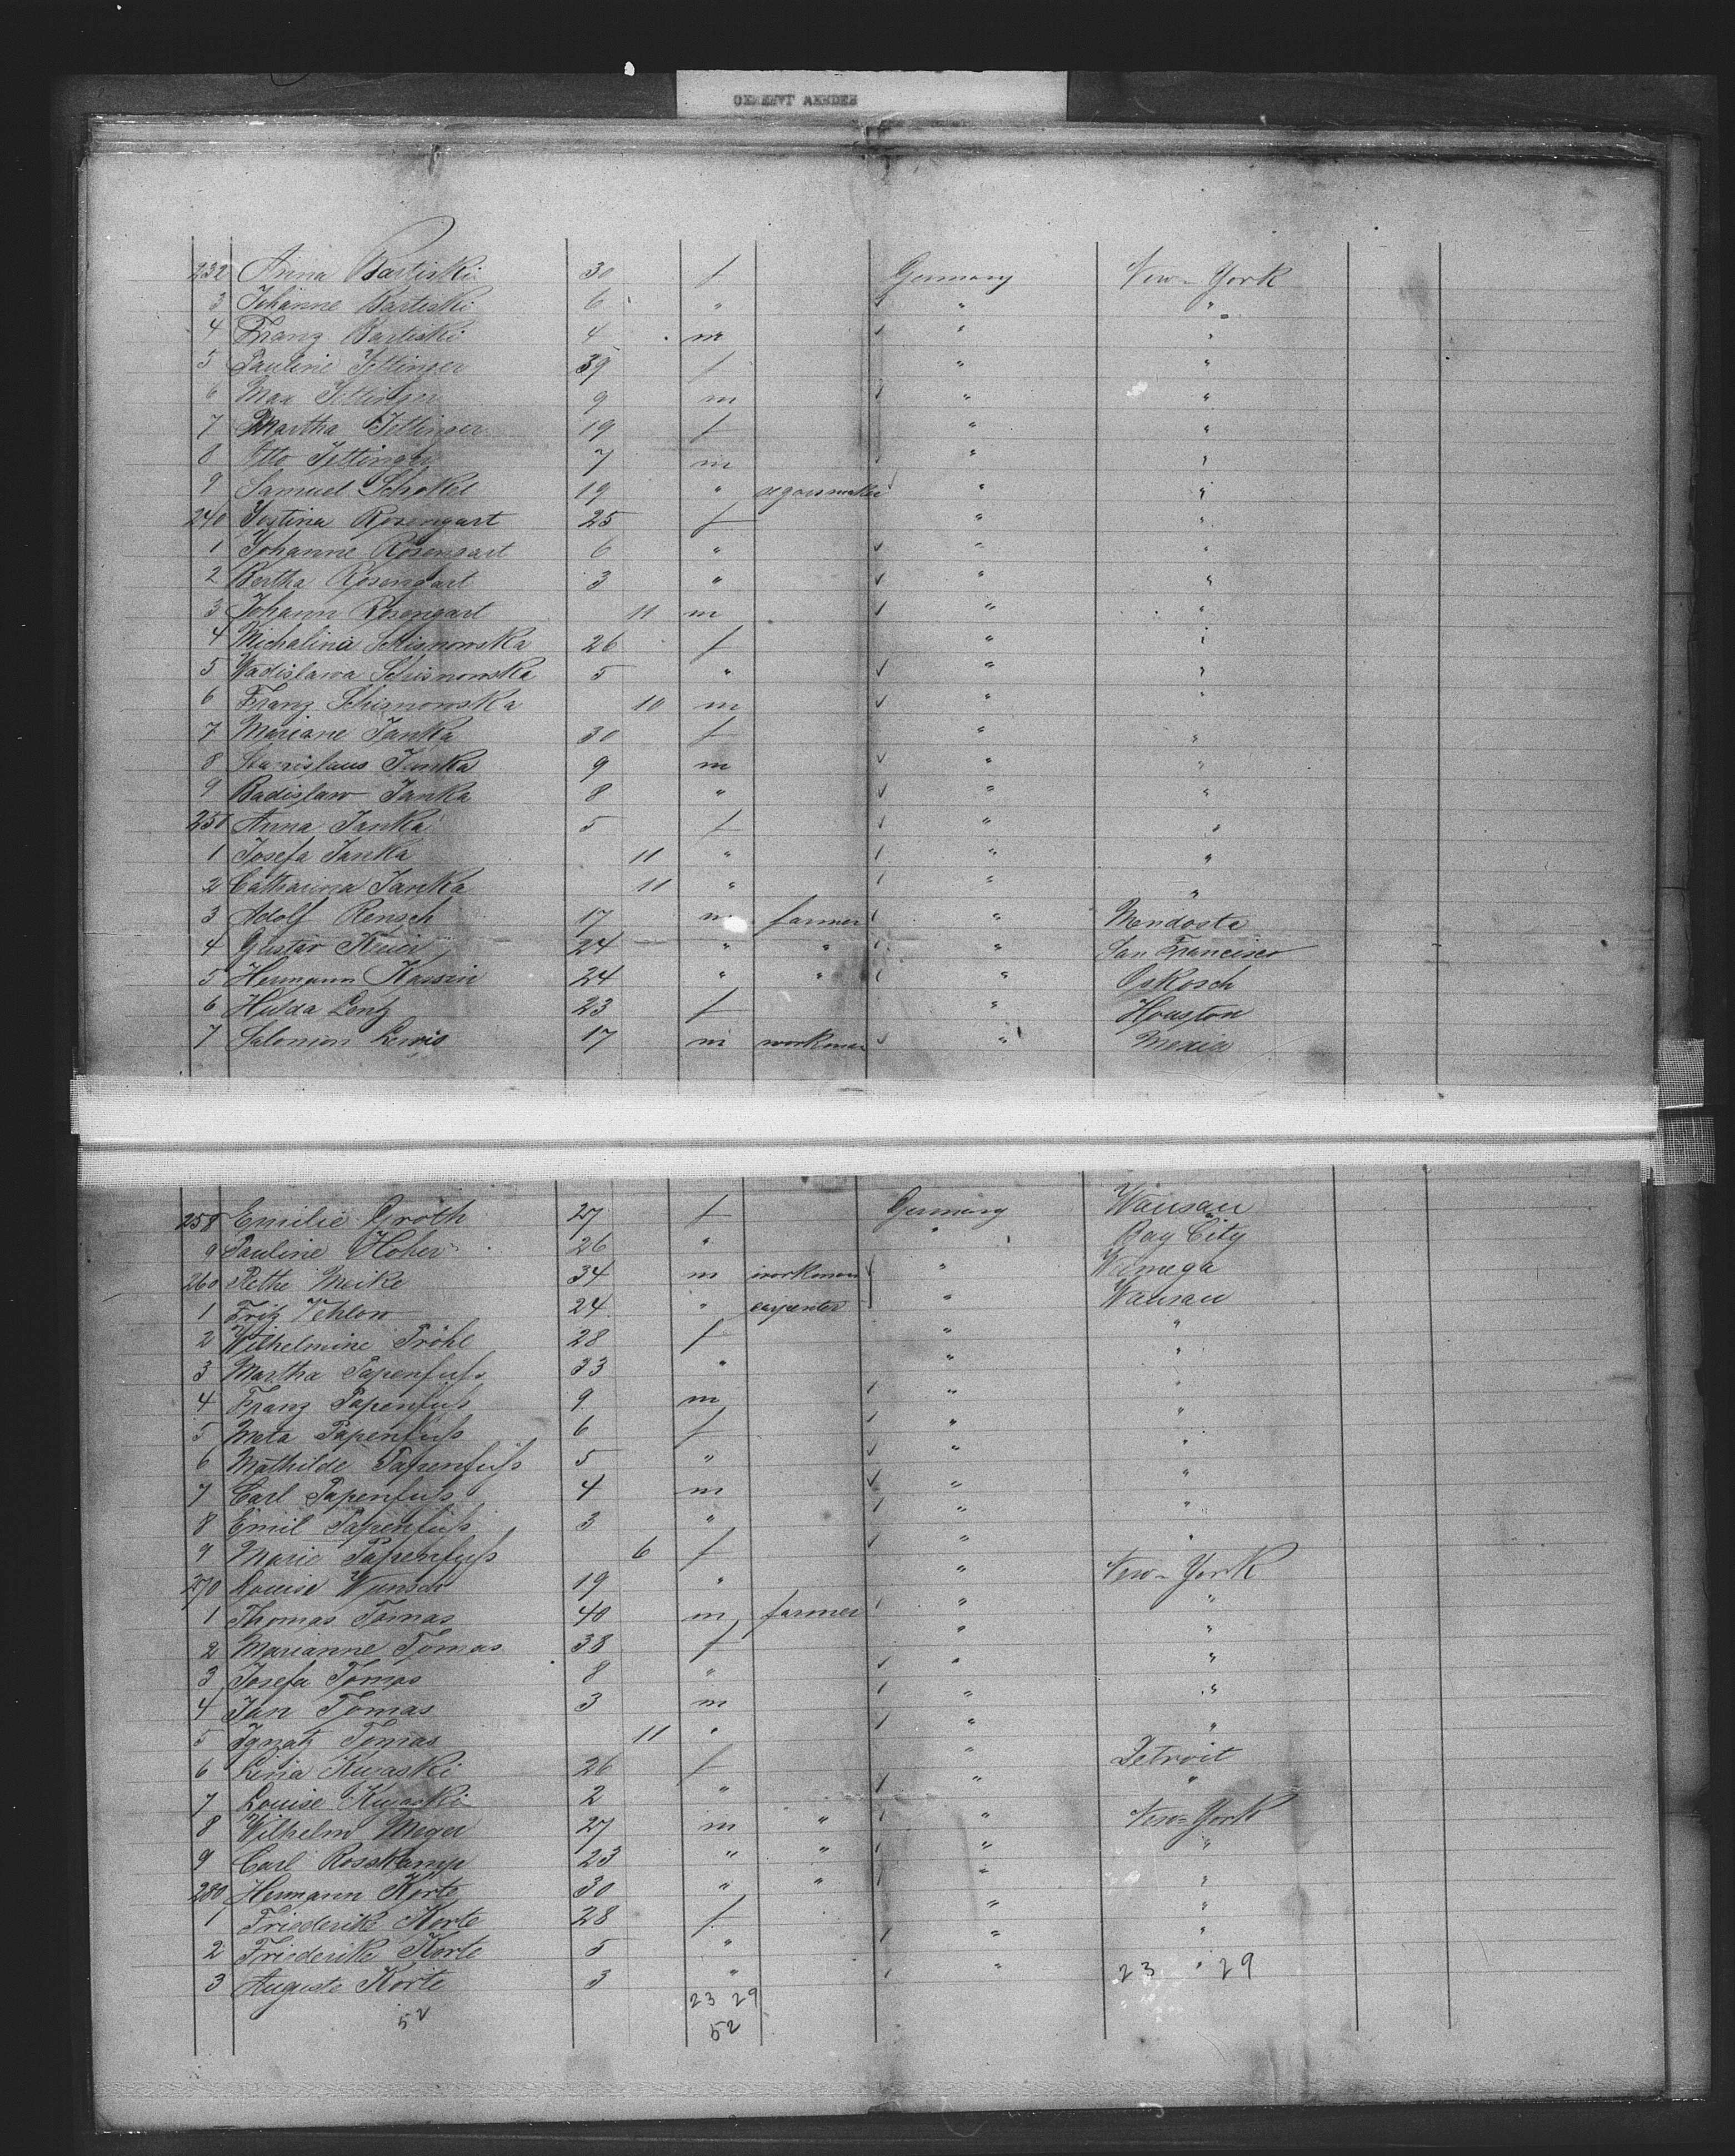 232 Anna Bartiski 30 f Germany New-York
3 Johanne Bartiski 6 " " "
4 Franz Bartiski 4 m " "
5 Pauline Jettinger 39 f " "
6 Max Jettinger 9 m " "
7 Martha Jettinger 19 f " "
8 Otto Jettinger 7 m " "
9 Samuel Schokel 19 " " "
240 Justina Rosengart 25 f " "
1 Johanne Rosengart 6 " " "
2 Bertha Rosengart 3 " " "
3 Johann Rosengart 11 m " "
4 Michalina Schismowska 26 f " "
5 Wadislawa Schismowska 5 " " "
6 Franz Schismowska 10 m " "
7 Mariane Janka 30 f " "
8 Stanislaus Janka 9 m " "
9 Badislaw Janka 8 " " "
250 Anna Janka 5 f " "
1 Josefa Janka 11 " " "
2 Catharina Janka 11 " " "
3 Adolf Rensch 17 m farmer " Mendosta
4 Gustav 24 " " " San Francisco
5 Hermann Kassin 24 " " " Oskosch
6 Hulda Lentz 23 f " Houston
7 Salomon Lewis 17 m workman " Mexia
258 Emilie Groth 27 f Germany Wausau
9 Pauline Hoher 26 " " Bay City
260 Meike 34 m workman " Wamega
1 Fritz Tehlow 24 " carpenter " Wausau
2 Wilhelmine Pröhl 28 f " "
3 Martha Papenfuß 33 " " "
4 Franz Papenfuß 9 m " "
5 Meta Papenfuß 6 f " "
6 Mathilde Papenfuß 5 " " "
7 Carl Papenfuß 4 m " "
8 Emil Papenfuß 3 " " "
9 Marie Papenfuß 6 f " "
270 Louise Wunsch 19 " " New-York
1 Thomas Tomas 40 m farmer " "
2 Marianne Tomas 38 f " "
3 Josefa Tomas 8 " " "
4 Jan Tomas 3 m " "
5 Ignatz Tomas 11 " " "
6 Lina Kuraski 26 f " Detroit
7 Louise Kuraski 2 " " "
8 Wilhelm Meger 27 m " " New-York
9 Carl Rosskamp 23 " " " "
280 Hermann Korte 30 " " " "
1 Friederike Korte 28 f " "
2 Friederike Korte 5 " " "
3 Auguste Korte 3 " " 23 " 29
23 29
52 52